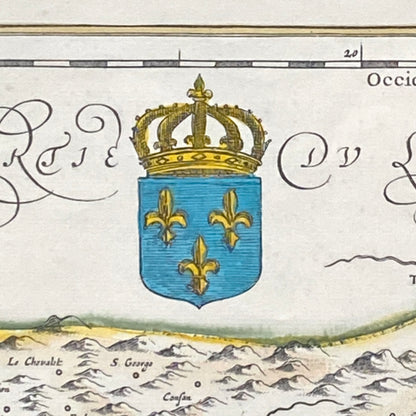 20
Occi
RTIE DV L
T
Le Chevalit
S. George
Cousan